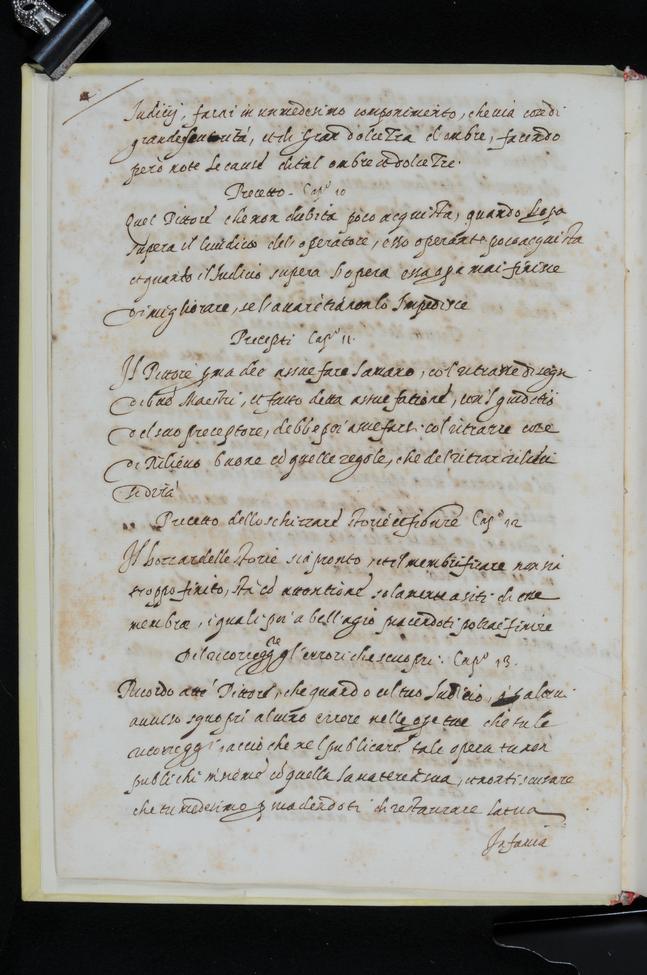 Judicij, farai in un medesimo componimento, che via cose di
grande scurità, et di gran dolceza d'ombre, facendo
però note le cause di tal ombre et dolceze.
Precetto. Cap.º 10
Quel Pittore che non dubita poco acquista, quando l'opa
supera il Giudicio del operatore, esso operante poco acquista
et quando il Judicio supera l'opera essa opa mai finisce
di migliorare, se l'avaritia non lo Impedisce
Precetti Cap.º 11.
Il Pittore pma dee assuefare la mano, col ritrarre disegni
di buō Maestri, et fatta detta assuefatione, con'l giuditio
del suo preceptore, debbe poi assuefarsi col ritrarre cose
di Rilievo buone cō quelle regole, che del ritrar rilievi
si dirà
Precetto dello schizzare storie et figure Cap.º 12
Il bozzar delle storie sia pronto, et il membrificare non sia
troppo finito, sta cō attentione solamente a siti di esse
membra, i quali poi a bell'agio piacendoti potrai finire
Del ricorregge gl'errori che scuopri. Cap.º 13.
Ricordo a te Pittore, che quando o col tuo Judicio, o p altrui
avviso scuopri alcuno errore nelle ope tue che tu le
ricorreggi, acciò che nel publicare tale opera tu non
publichi insieme cō quella la materia tua, et non ti scusare
che tu medesimo psuadendoti di restaurare la tua
Infamia